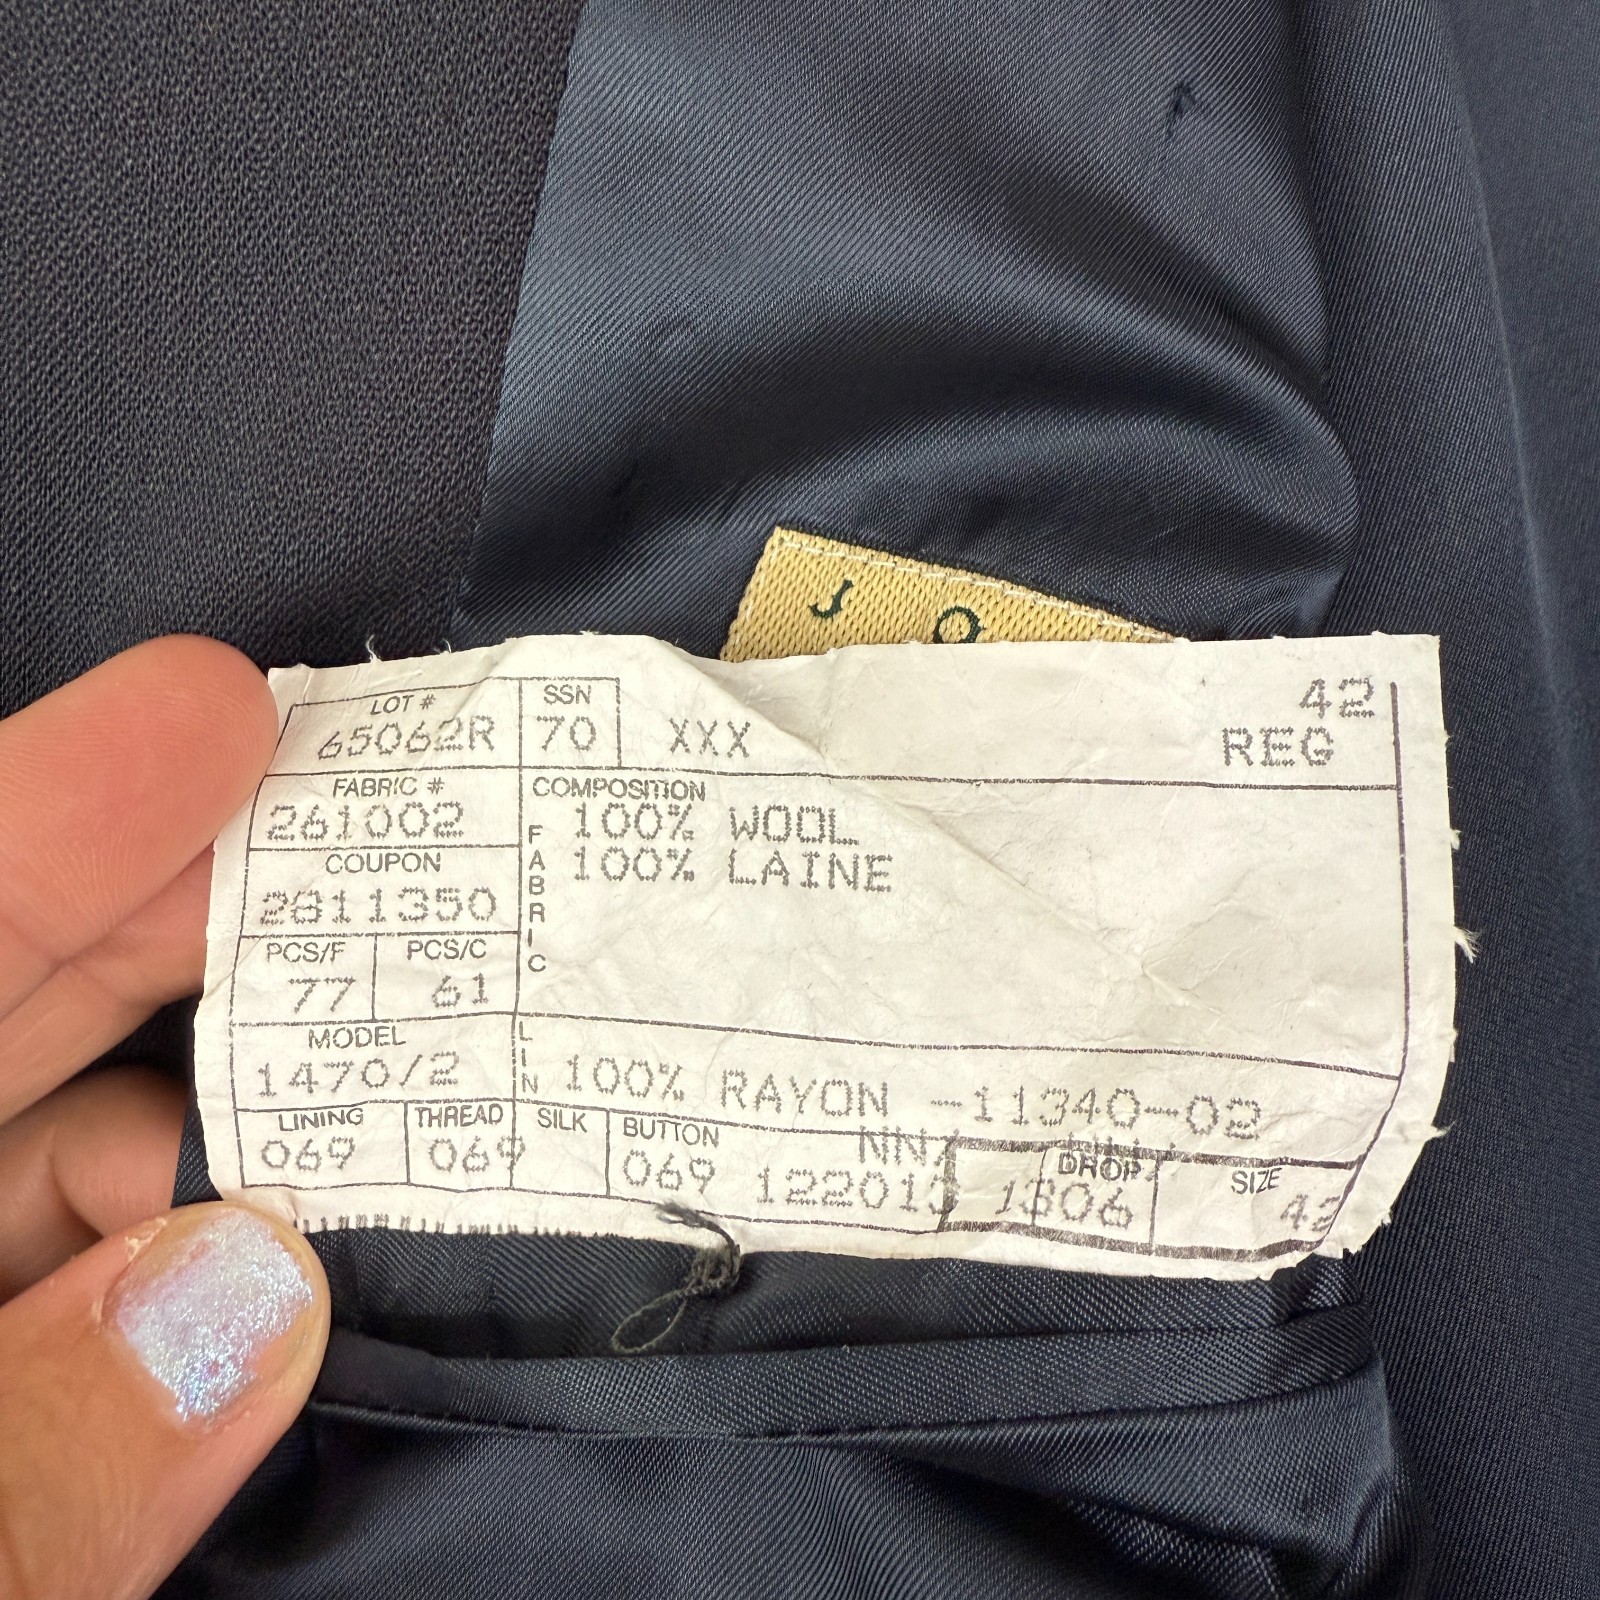 J O
LOT # SSN 42
65062R 70 XXX REG
FABRIC # COMPOSITION
261002 FABRIC 100% WOOL
COUPON 100% LAINE
2811350
PCS/F PCS/C
77 61
MODEL
1470/2 LIN 100% RAYON -11340-02
LINING THREAD SILK BUTTON DROP SIZE
069 069 069 1306 42